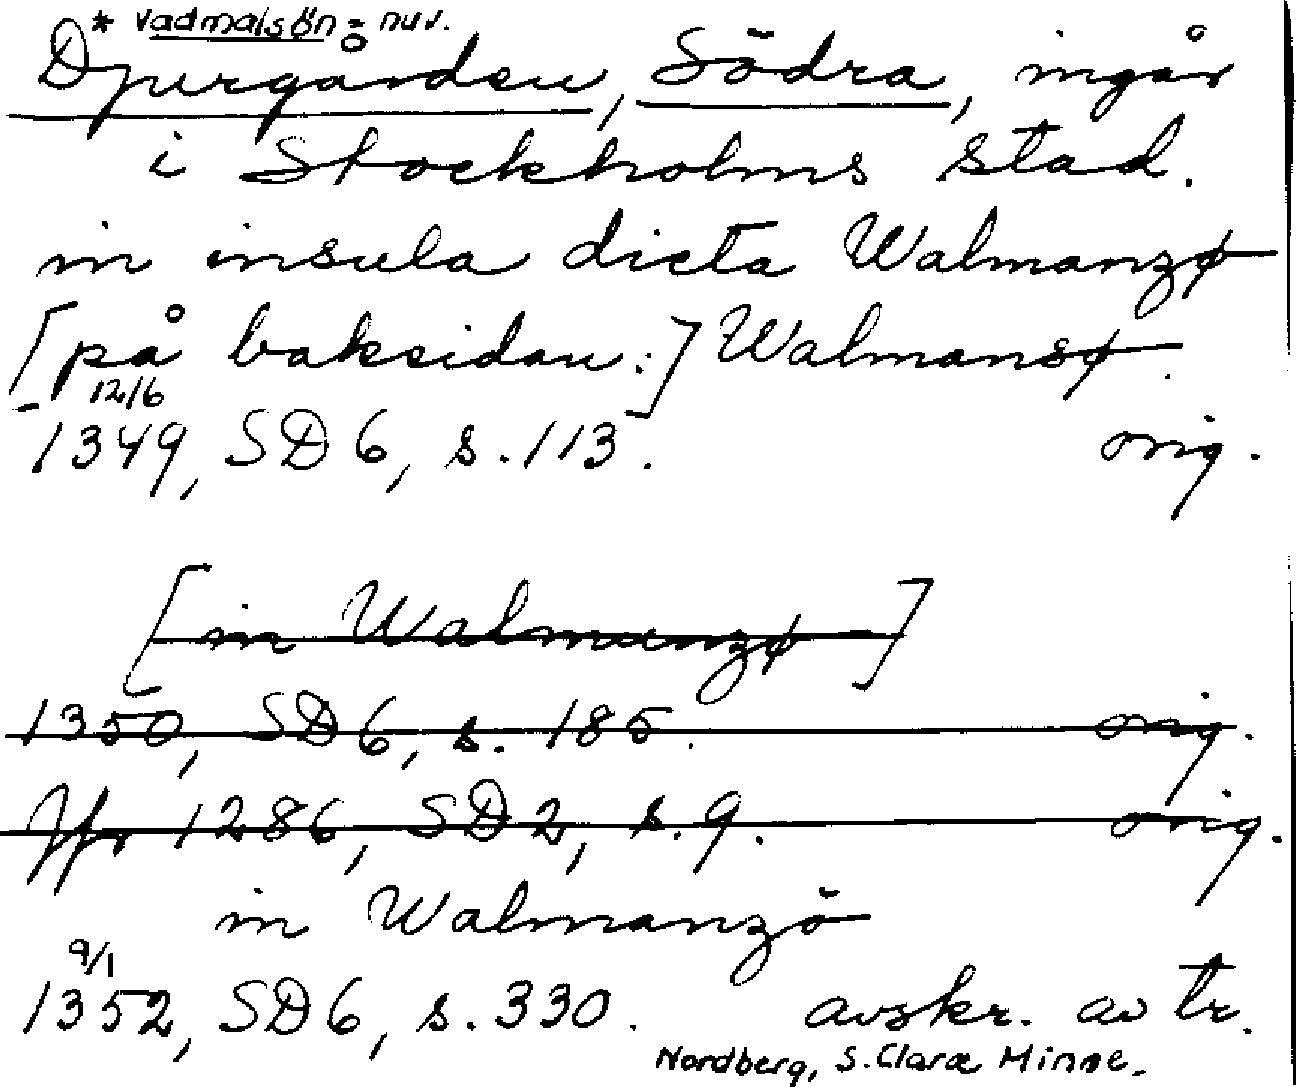 * vadmalsön = nuv.
Djurgården, Södra, ingår
i Stockholms stad.
in insula dicta Walmanzø
[på baksidan:] Walmansø.
12/6
1349, SD 6, s. 113. orig.
[in Walmunzø]
1350, SD 6, s. 185. orig.
Jfr 1286, SD 2, s. 9. orig.
in Walmanzö
9/1
1352, SD 6, s. 330. avskr. av tr.
Nordberg, S. Claræ Minne.